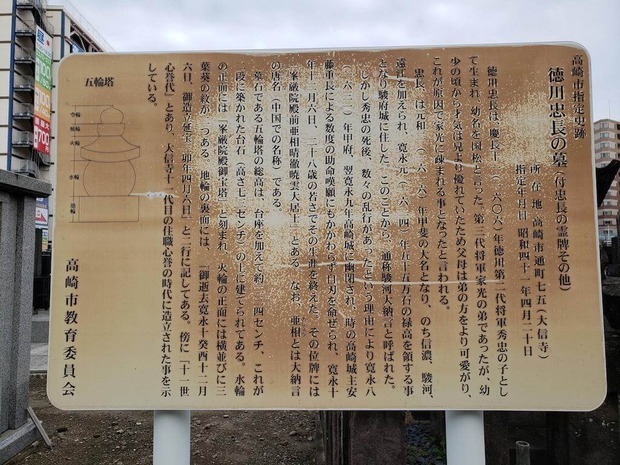 高崎市指定史跡
徳川忠長の墓(付忠長の霊牌その他)
所在地 高崎市通町七五(大信寺)
指定年月日 昭和四十一年四月二十日
徳川忠長は、慶長十一(一六〇六)年徳川第二代将軍秀忠の子とし
て生まれ、幼名を国松と言った。第三代将軍家光の弟であったが、幼
少の頃から才気は兄より優れていたため父母は弟の方をより可愛がり、
これが原因で家光に疎まれる事となったと言われる。
忠長は、元和 (一六 六)年甲斐の大名となり、のち信濃、駿河、
遠江を加えられ、寛永元(一六 四)年五十五万石の禄高を領する事
となり駿府城に住した。このことから、通称駿河大納言と呼ばれた。
しかし秀忠の死後、数々の乱行があったという理由により寛永八
(一六三一)年甲府、翌寛永九年高崎城に幽閉され、時の高崎城主安
藤重長による数度の助命嘆願にもかかわらず自刃を命ぜられ、寛永十
年十二月六日、二十八歳の若さでその生涯を終えた。その位牌には
「峯厳院殿前亜相晴徹暁雲大居士」とある。なお、亜相とは大納言
の唐名(中国での名称)である。
墓石である五輪塔の総高は、台座を加えて約 三四センチ、これが
二段に築かれた台石(高さ七 センチ)の上に建てられてある。水輪
の正面には「峯厳院殿御宝塔」と刻まれ、火輪の正面には横並びに三
葉葵の紋が つある。地輪の裏面には、「御逝去寛永十癸酉十二月
六日、御造立延宝 卯年四月六日」と二行に記してある。傍に「十一世
心誉代」とあり、大信寺十一代目の住職心誉の時代に造立された事を示
している。
高崎市教育委員会
五輪塔
空輪
風輪
火輪
水輪
地輪